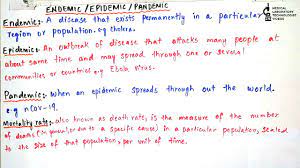 ENDEMIC/EPIDEMIC/PANDEMIC
MEDICAL
LABORATORY
TECHNOLOGIST
VIDEOS
Endemic: A disease that exists permanently in a particular
region or population. eg cholera.
Epidemic: An outbreak of disease that attacks many people at
about same time and may spread through one or several
communities or countries eg Ebola Virus.
Pandemic: When an epidemic spreads through out the world.
e.g nCov-19.
Mortality rate: also known as death rate, is the measure of the number
of deaths (in general, or due to a specific cause) in a particular population, scaled
to the size of that population, per unit of time.